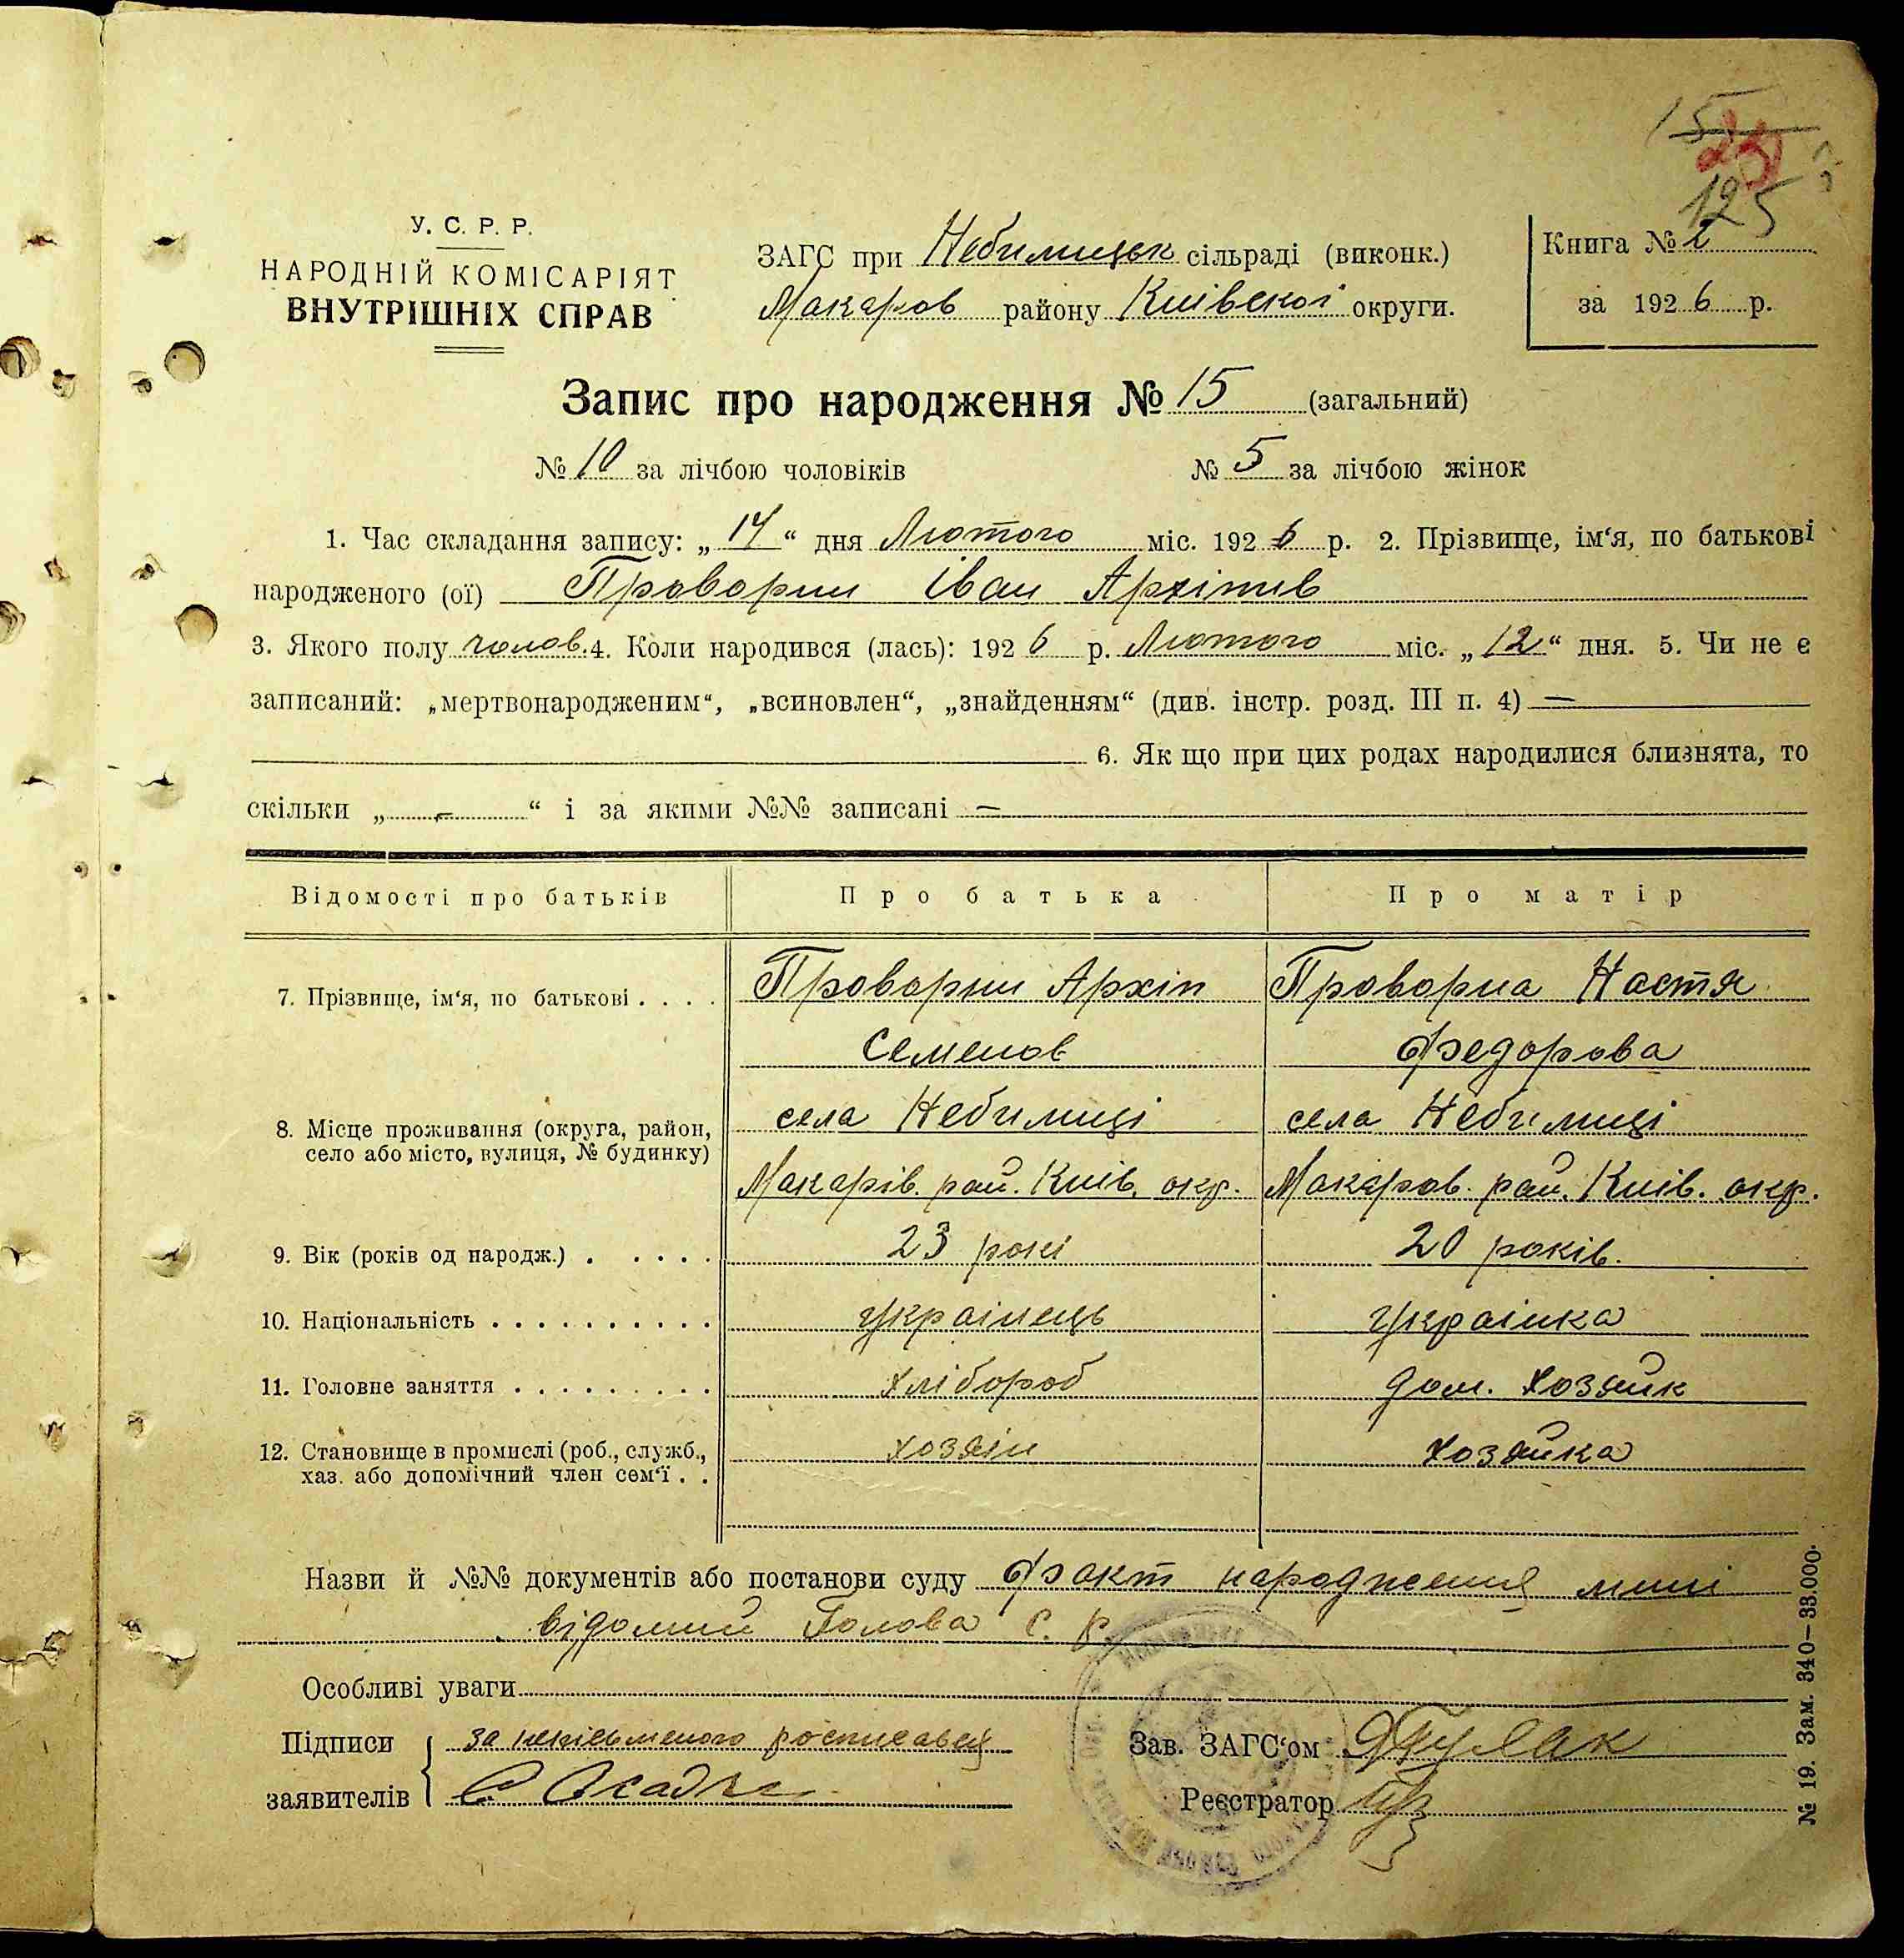 15
25
125
У. С. Р. Р.
НАРОДНІЙ КОМІСАРІЯТ
ВНУТРІШНІХ СПРАВ
ЗАГС при Небилицьк сільраді (виконк.)
Макаров району Київскої округи.
Книга № 1
за 1926 р.
Запис про народження № 15 (загальний)
№ 10 за лічбою чоловіків № 5 за лічбою жінок
1. Час складання запису: „14“ дня Лютого міс. 1926 р. 2. Прізвище, ім‘я, по батькові
народженого (ої) Проворни Іван Архіпів
3. Якого полу чолов. 4. Коли народився (лась): 1926 р. Лютого міс. „12“ дня. 5. Чи не є
записаний: „мертвонародженим“, „всиновлен“, „знайденням“ (див. інстр. розд. III п. 4) —
6. Як що при цих родах народилися близнята, то
скільки „ — “ і за якими №№ записані —
Відомості про батьків Про батька Про матір
7. Прізвище, ім‘я, по батькові . . . . Проворни Архіп Проворна Настя
Семенов Федорова
села Небилиці села Небилиці
8. Місце проживання (округа, район,
село або місто, вулиця, № будинку)
Макарів. рай. Київ. окр. Макаров. рай. Київ. окр.
9. Вік (років од народж.) . . . . . 23 рокі 20 років.
10. Національність . . . . . . . . . . українець українка
11. Головне заняття . . . . . . . . . хлібороб дом. хозяйк
12. Становище в промислі (роб., служб.,
хаз. або допомічний член сем‘ї . . хозяін хозяйка
Назви й №№ документів або постанови суду Факт народження мині
відомий Голова С. Р.
Особливі уваги
Підписи за неписьменого росписався
заявителів
Зав. ЗАГС‘ом
Реєстратор
№ 19. Зам. 340—33.000.